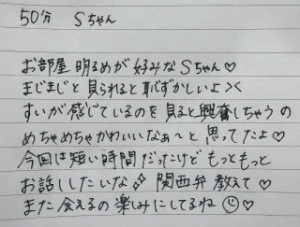 50分 Sちゃん
お部屋 明るめが好みなSちゃん♡
まじまじと見られると恥ずかしいよ><
すいが感じているのを見ると興奮しちゃうの
めちゃめちゃかわいいなぁ〜と思ってたよ♡
今回は短い時間だったけどもっともっと
お話ししたいな 関西弁教えて♡
また会えるの楽しみにしてるね☺♡